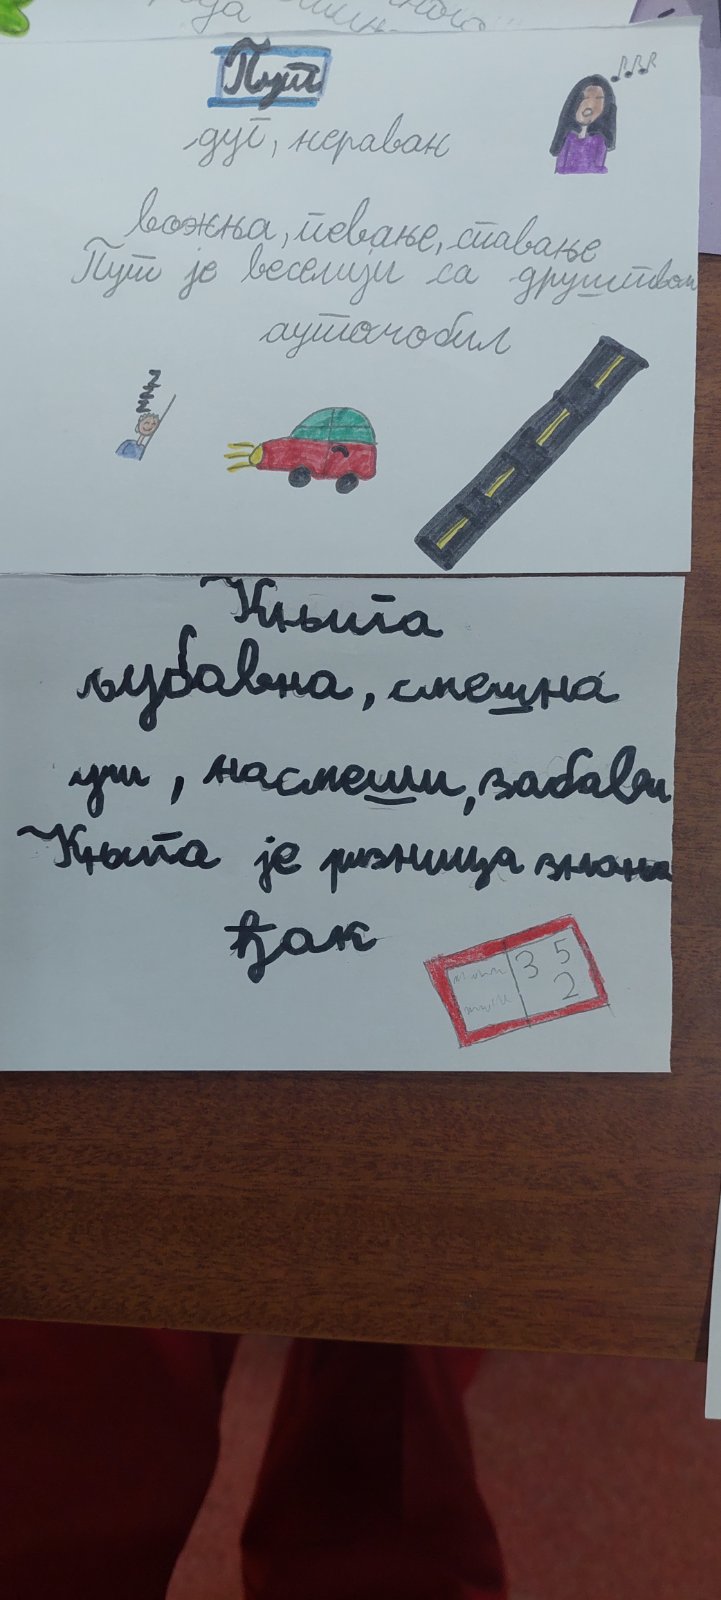 Пут
дуг, нераван
вожња, певање, спавање
Пут је веселији са друштвом
аутомобил
Књига
љубавна, смешна
учи, насмеши, забави
Књига је ризница знања
ђак
3 5
2